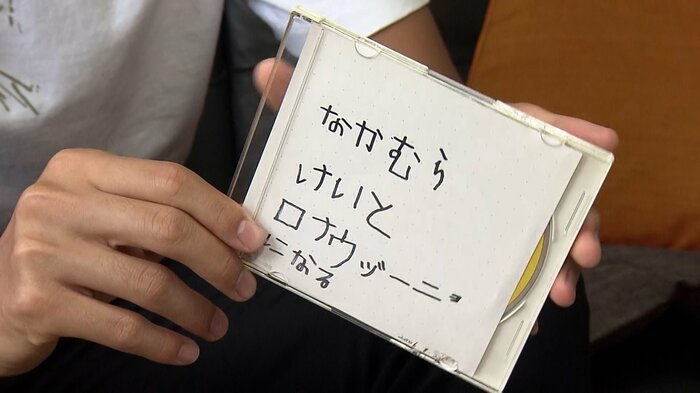 なかむら
けいと
ロナウヂーニョ
になる